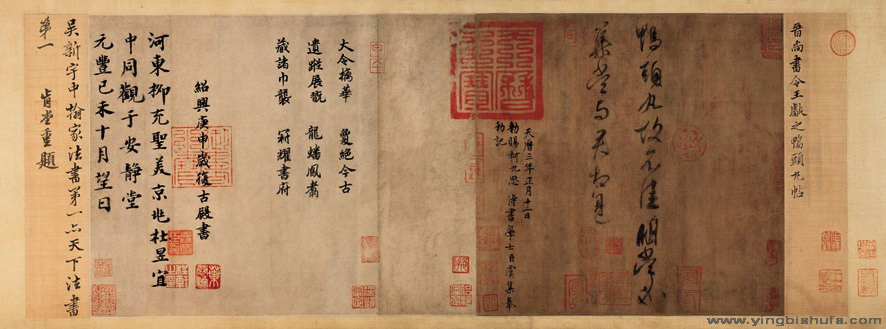 晉尚書令王獻之鴨頭丸帖
鴨頭丸故不佳明當必
集當與君相見
天曆三年正月十二日
勑賜柯九思 侍書學士臣虞集奉
勑記
大令摛華 夐絕今古
遺蹤展翫 龍蟠鳳翥
藏諸巾襲 冠耀書府
紹興庚申歲復古殿書
河東柳充聖美京兆杜昱宜
中同觀于安靜堂
元豐己未十月望日
吳新宇中翰家法書第一亦天下法書
第一 肯堂重題
www.yingbishufa.com